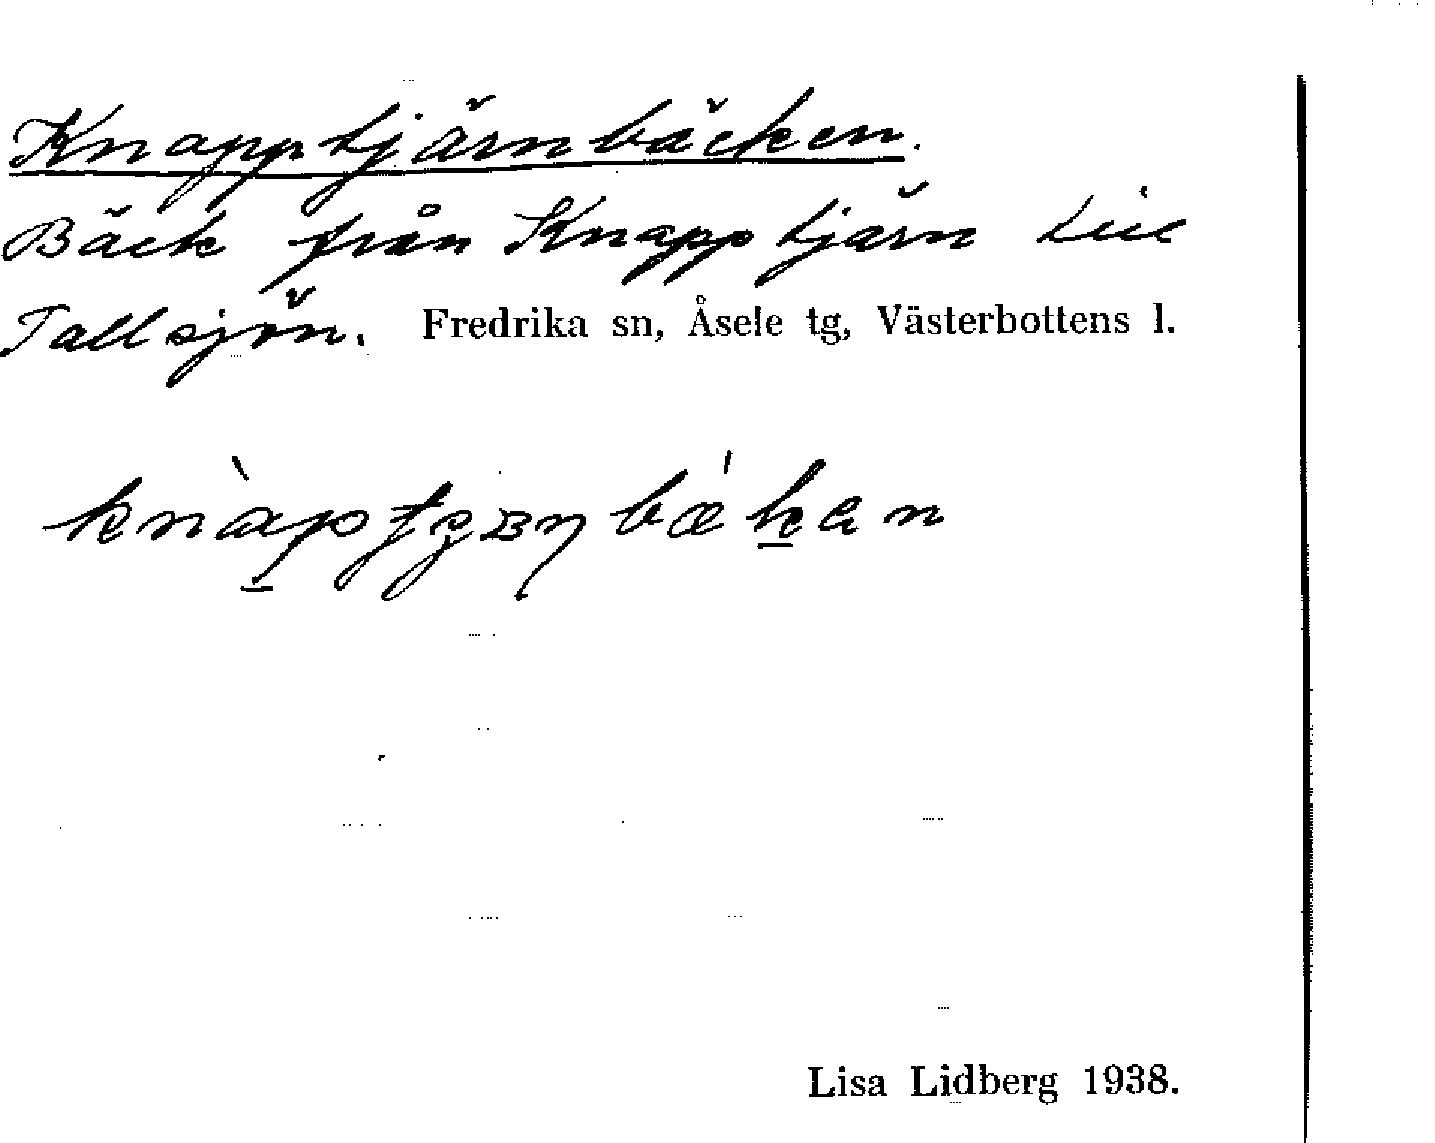 Knapptjärnbäcken.
Bäck från Knapptjärn till
Tallsjön. Fredrika sn, Åsele tg, Västerbottens l.
Lisa Lidberg 1938.